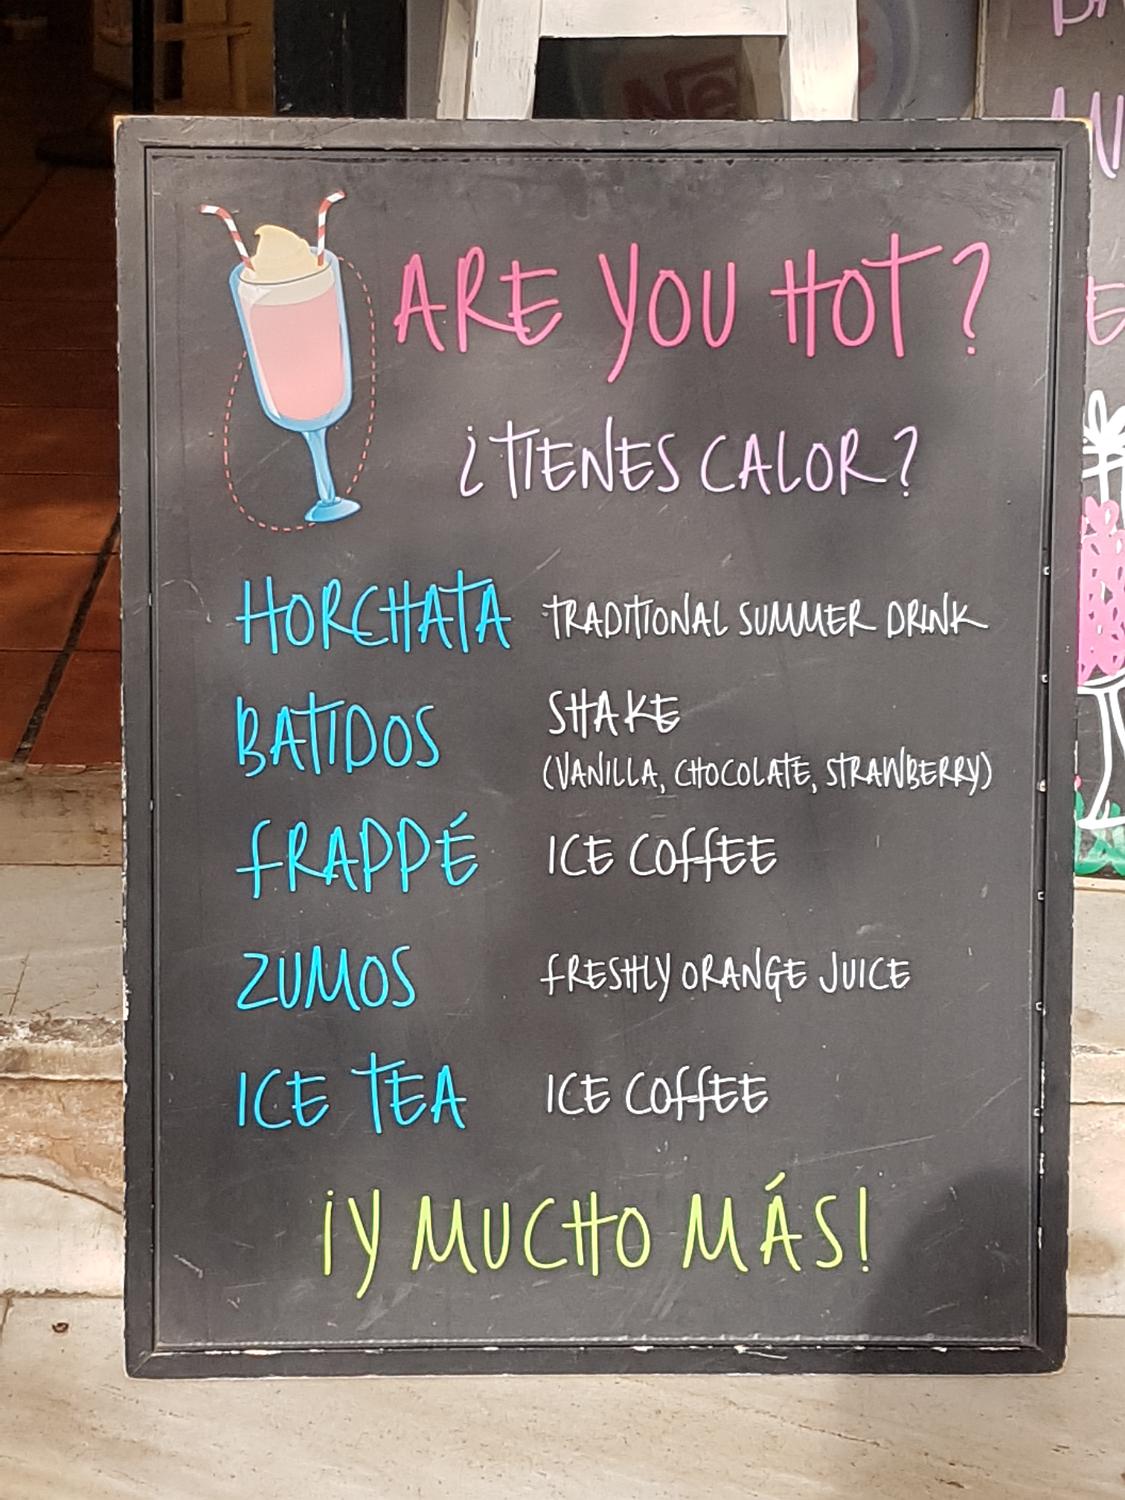 ARE YOU HOT?
¿TIENES CALOR?
HORCHATA TRADITIONAL SUMMER DRINK
BATIDOS SHAKE
(VANILLA, CHOCOLATE, STRAWBERRY)
FRAPPÉ ICE COFFEE
ZUMOS FRESHLY ORANGE JUICE
ICE TEA ICE COFFEE
¡Y MUCHO MÁS!